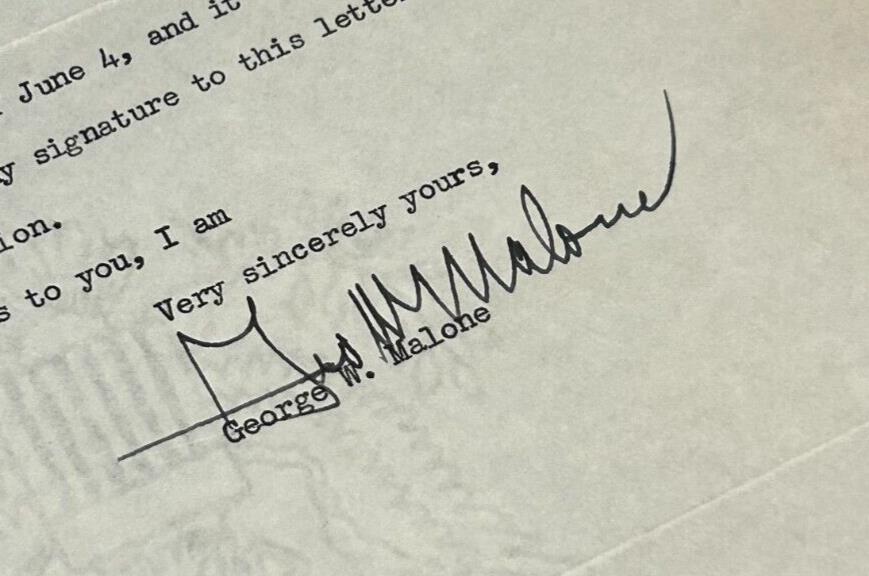 June 4, and it
signature to this
ion.
to you, I am
Very sincerely yours,
Geo W Malone
George W. Malone